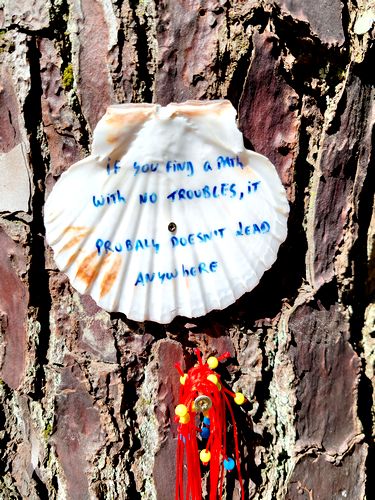 if YOU FIND A PATH
WITH NO TROUBLES, iT
PROBALY DOESN'T LEAD
ANYWHERE